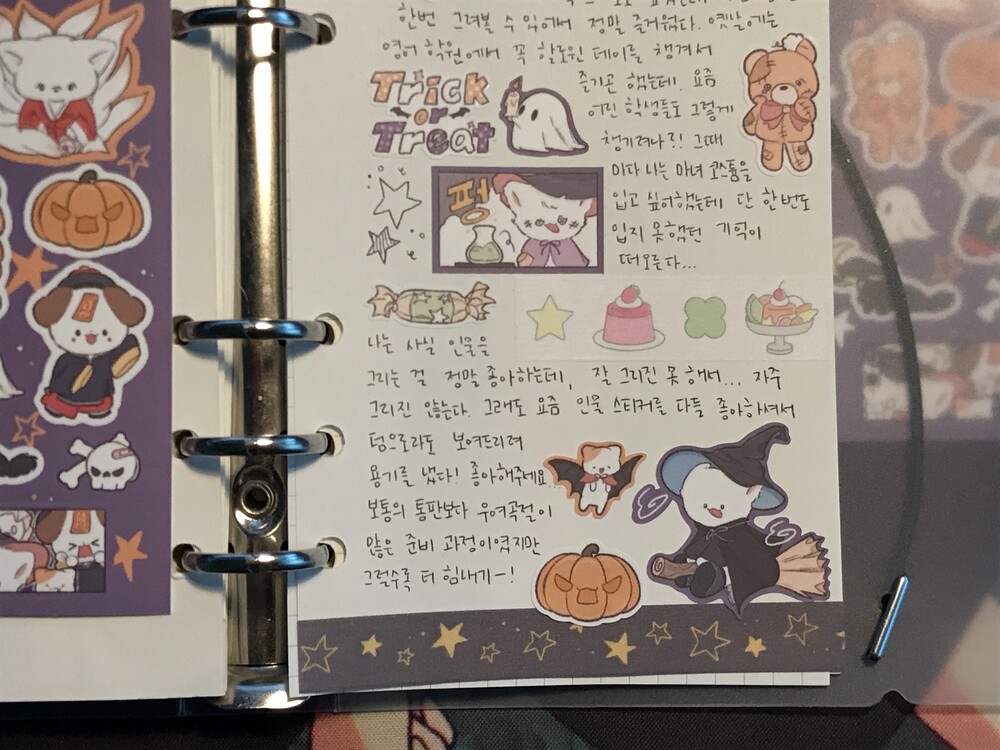 한번 그려볼 수 있어서 정말 즐거웠다. 옛날에는
영어 학원에서 꼭 할로윈 데이를 챙겨서
즐기곤 했는데. 요즘
어린 학생들도 그렇게
챙기려나?! 그때
마다 나는 마녀 코스튬을
입고 싶어했는데 단 한번도
입지 못했던 기억이
떠오른다...
Trick
or
Treat
펑
나는 사실 인물을
그리는 걸 정말 좋아하는데, 잘 그리진 못해서... 자주
그리진 않는다. 그래도 요즘 인물 스티커를 다들 좋아하셔서
덤으로라도 보여드리려
용기를 냈다! 좋아해주세요...
보통의 통판보다 우여곡절이
많은 준비 과정이였지만
그럴수록 더 힘내기-!